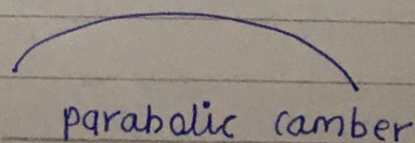 parabolic camber